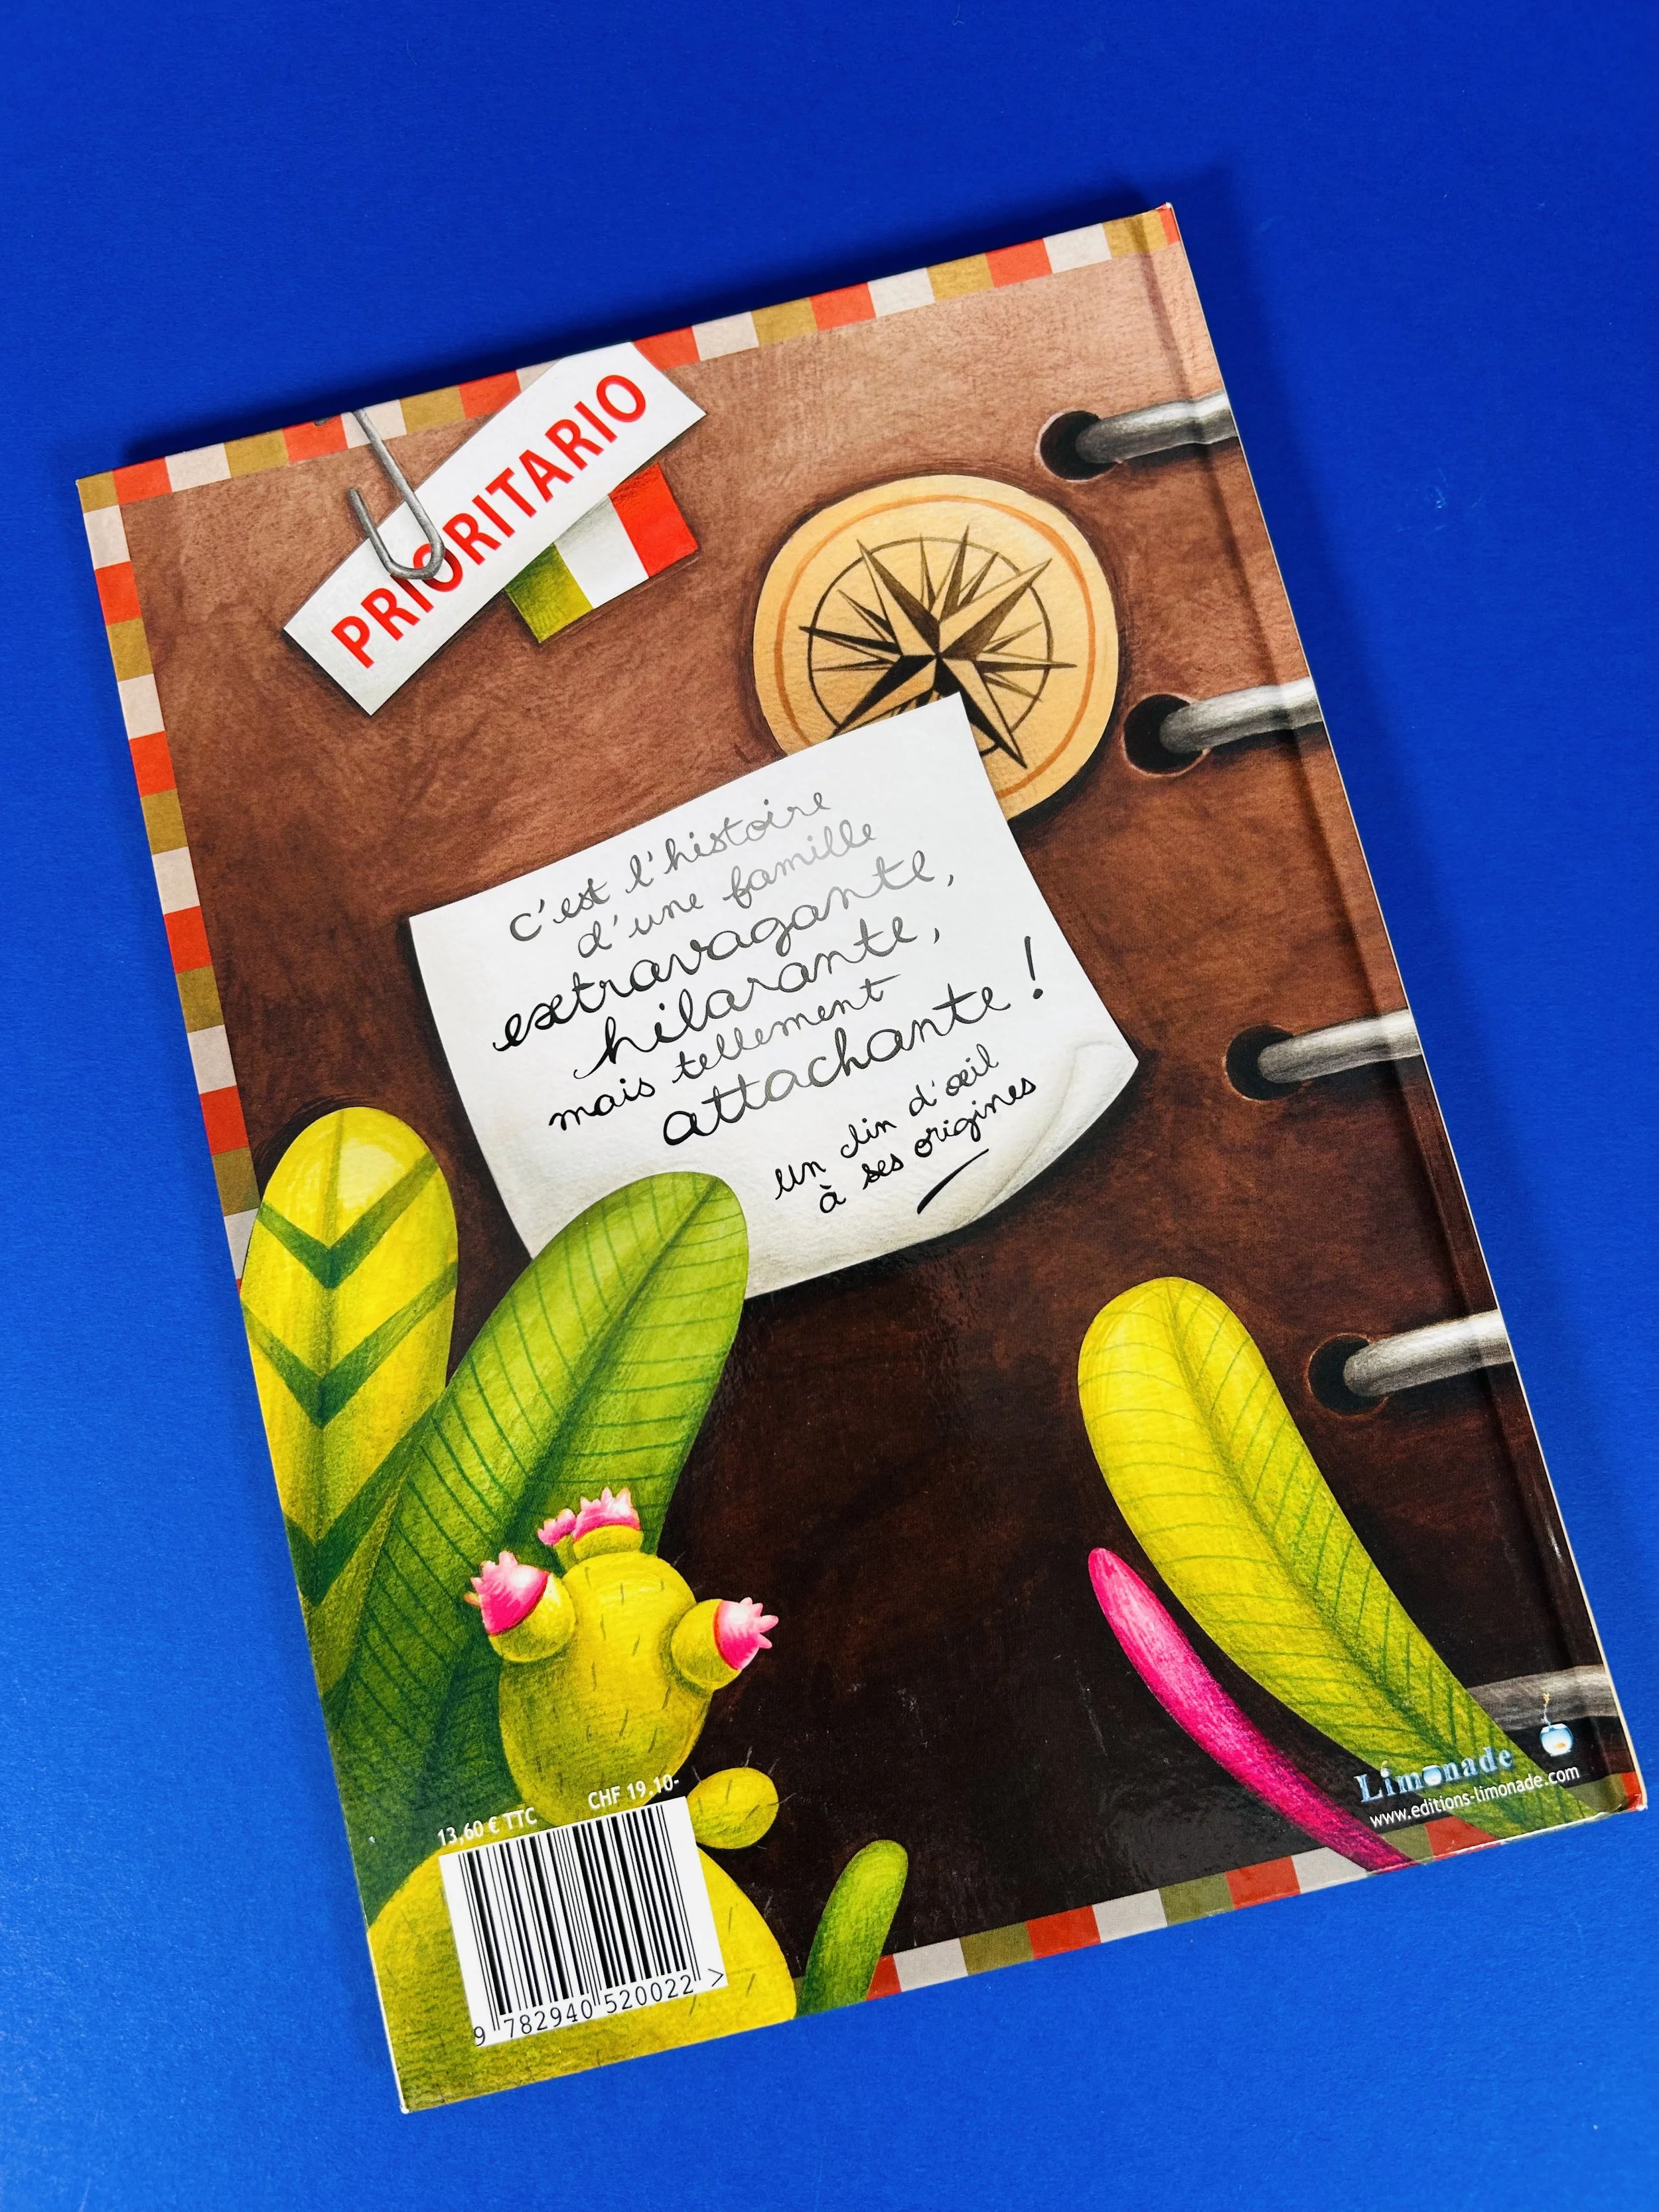 PRIORITARIO
c'est l'histoire
d'une famille
extravagante,
hilarante,
mais tellement
attachante !
un clin d'œil
à ses origines
Limonade
www.editions-limonade.com
13,60 € TTC CHF 19.10-
9 782940 520022 >